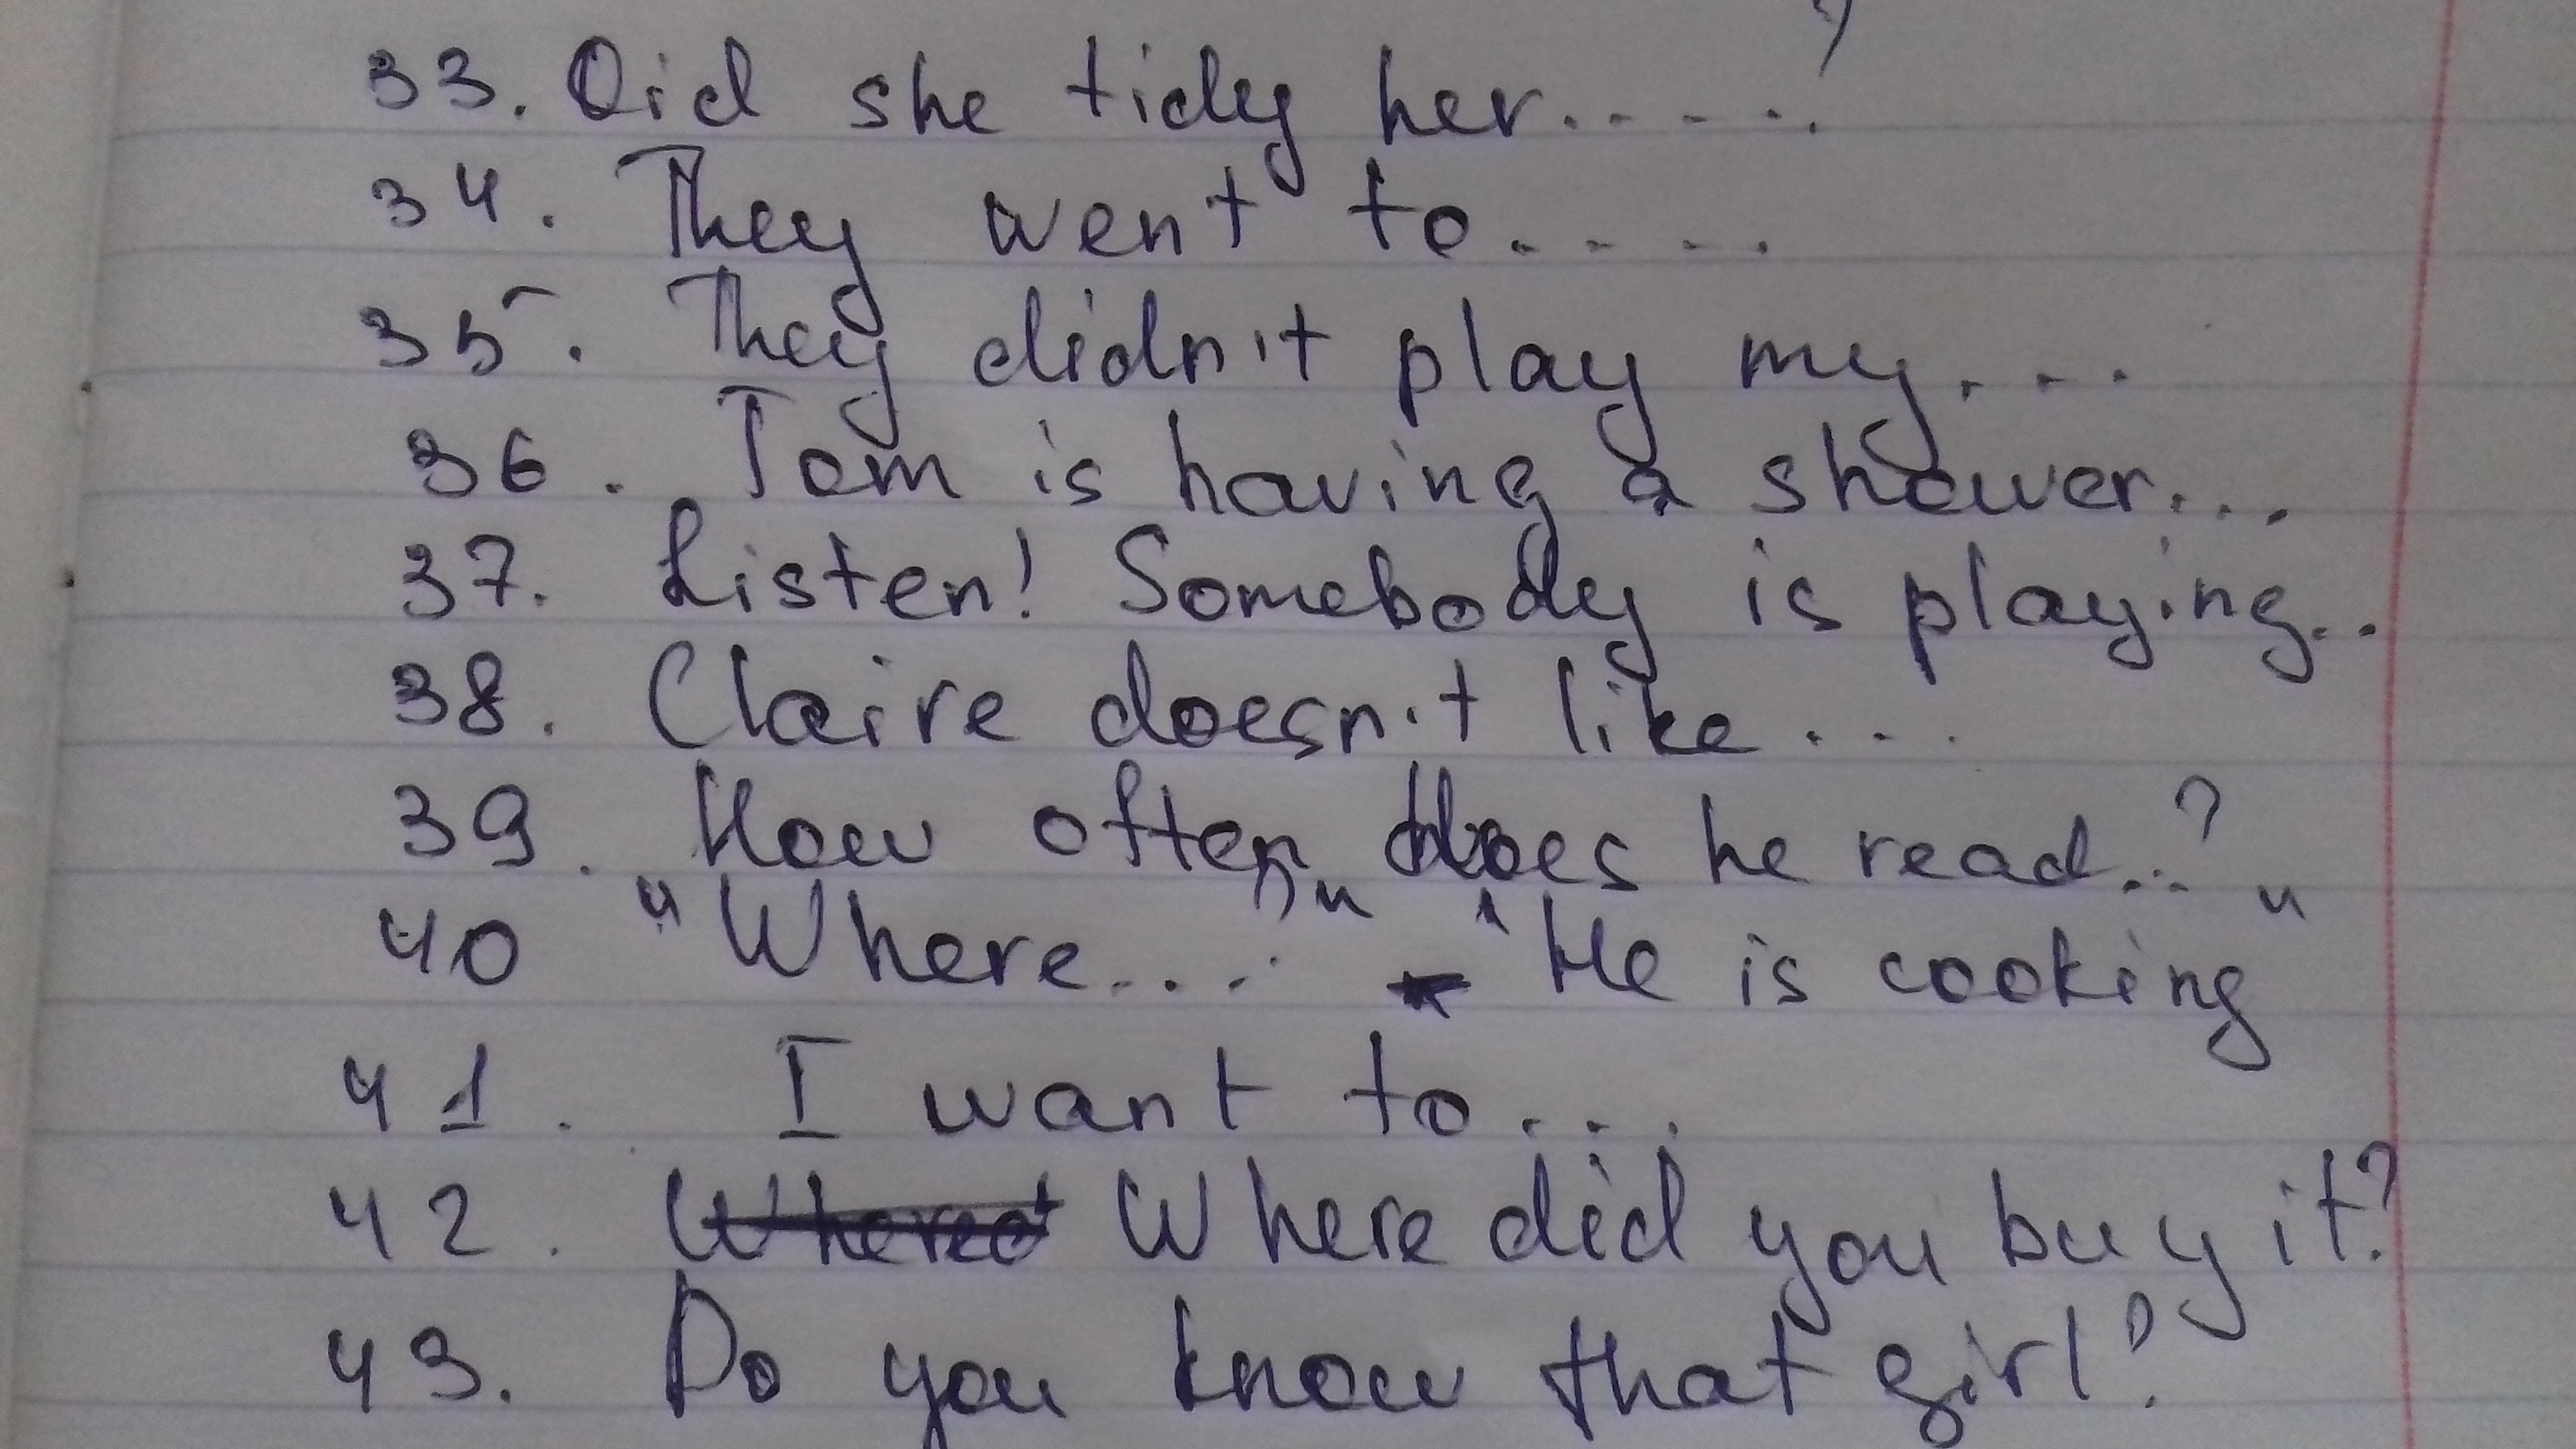 33. Did she tidy her.....?
34. They went to....
35. They didn't play my....
36. Tom is having a shower...
37. Listen! Somebody is playing..
38. Claire doesn't like...
39. How often does he read..?
40 "Where...." - "He is cooking"
41. I want to...
42. Where did you buy it?
43. Do you know that girl?